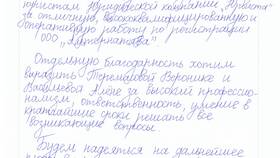 юристам Юридической компании "Юриста"
за отличную, высококвалифицированную и
оперативную работу по регистрации
ООО "Альтернатива"
Отдельную благодарность хотим
выразить Веронике и
Васильевой Алёне за высокий профессио-
нализм, ответственность, умение в
кратчайшие сроки решать все
возникающие вопросы.
Будем надеяться на дальнейшее